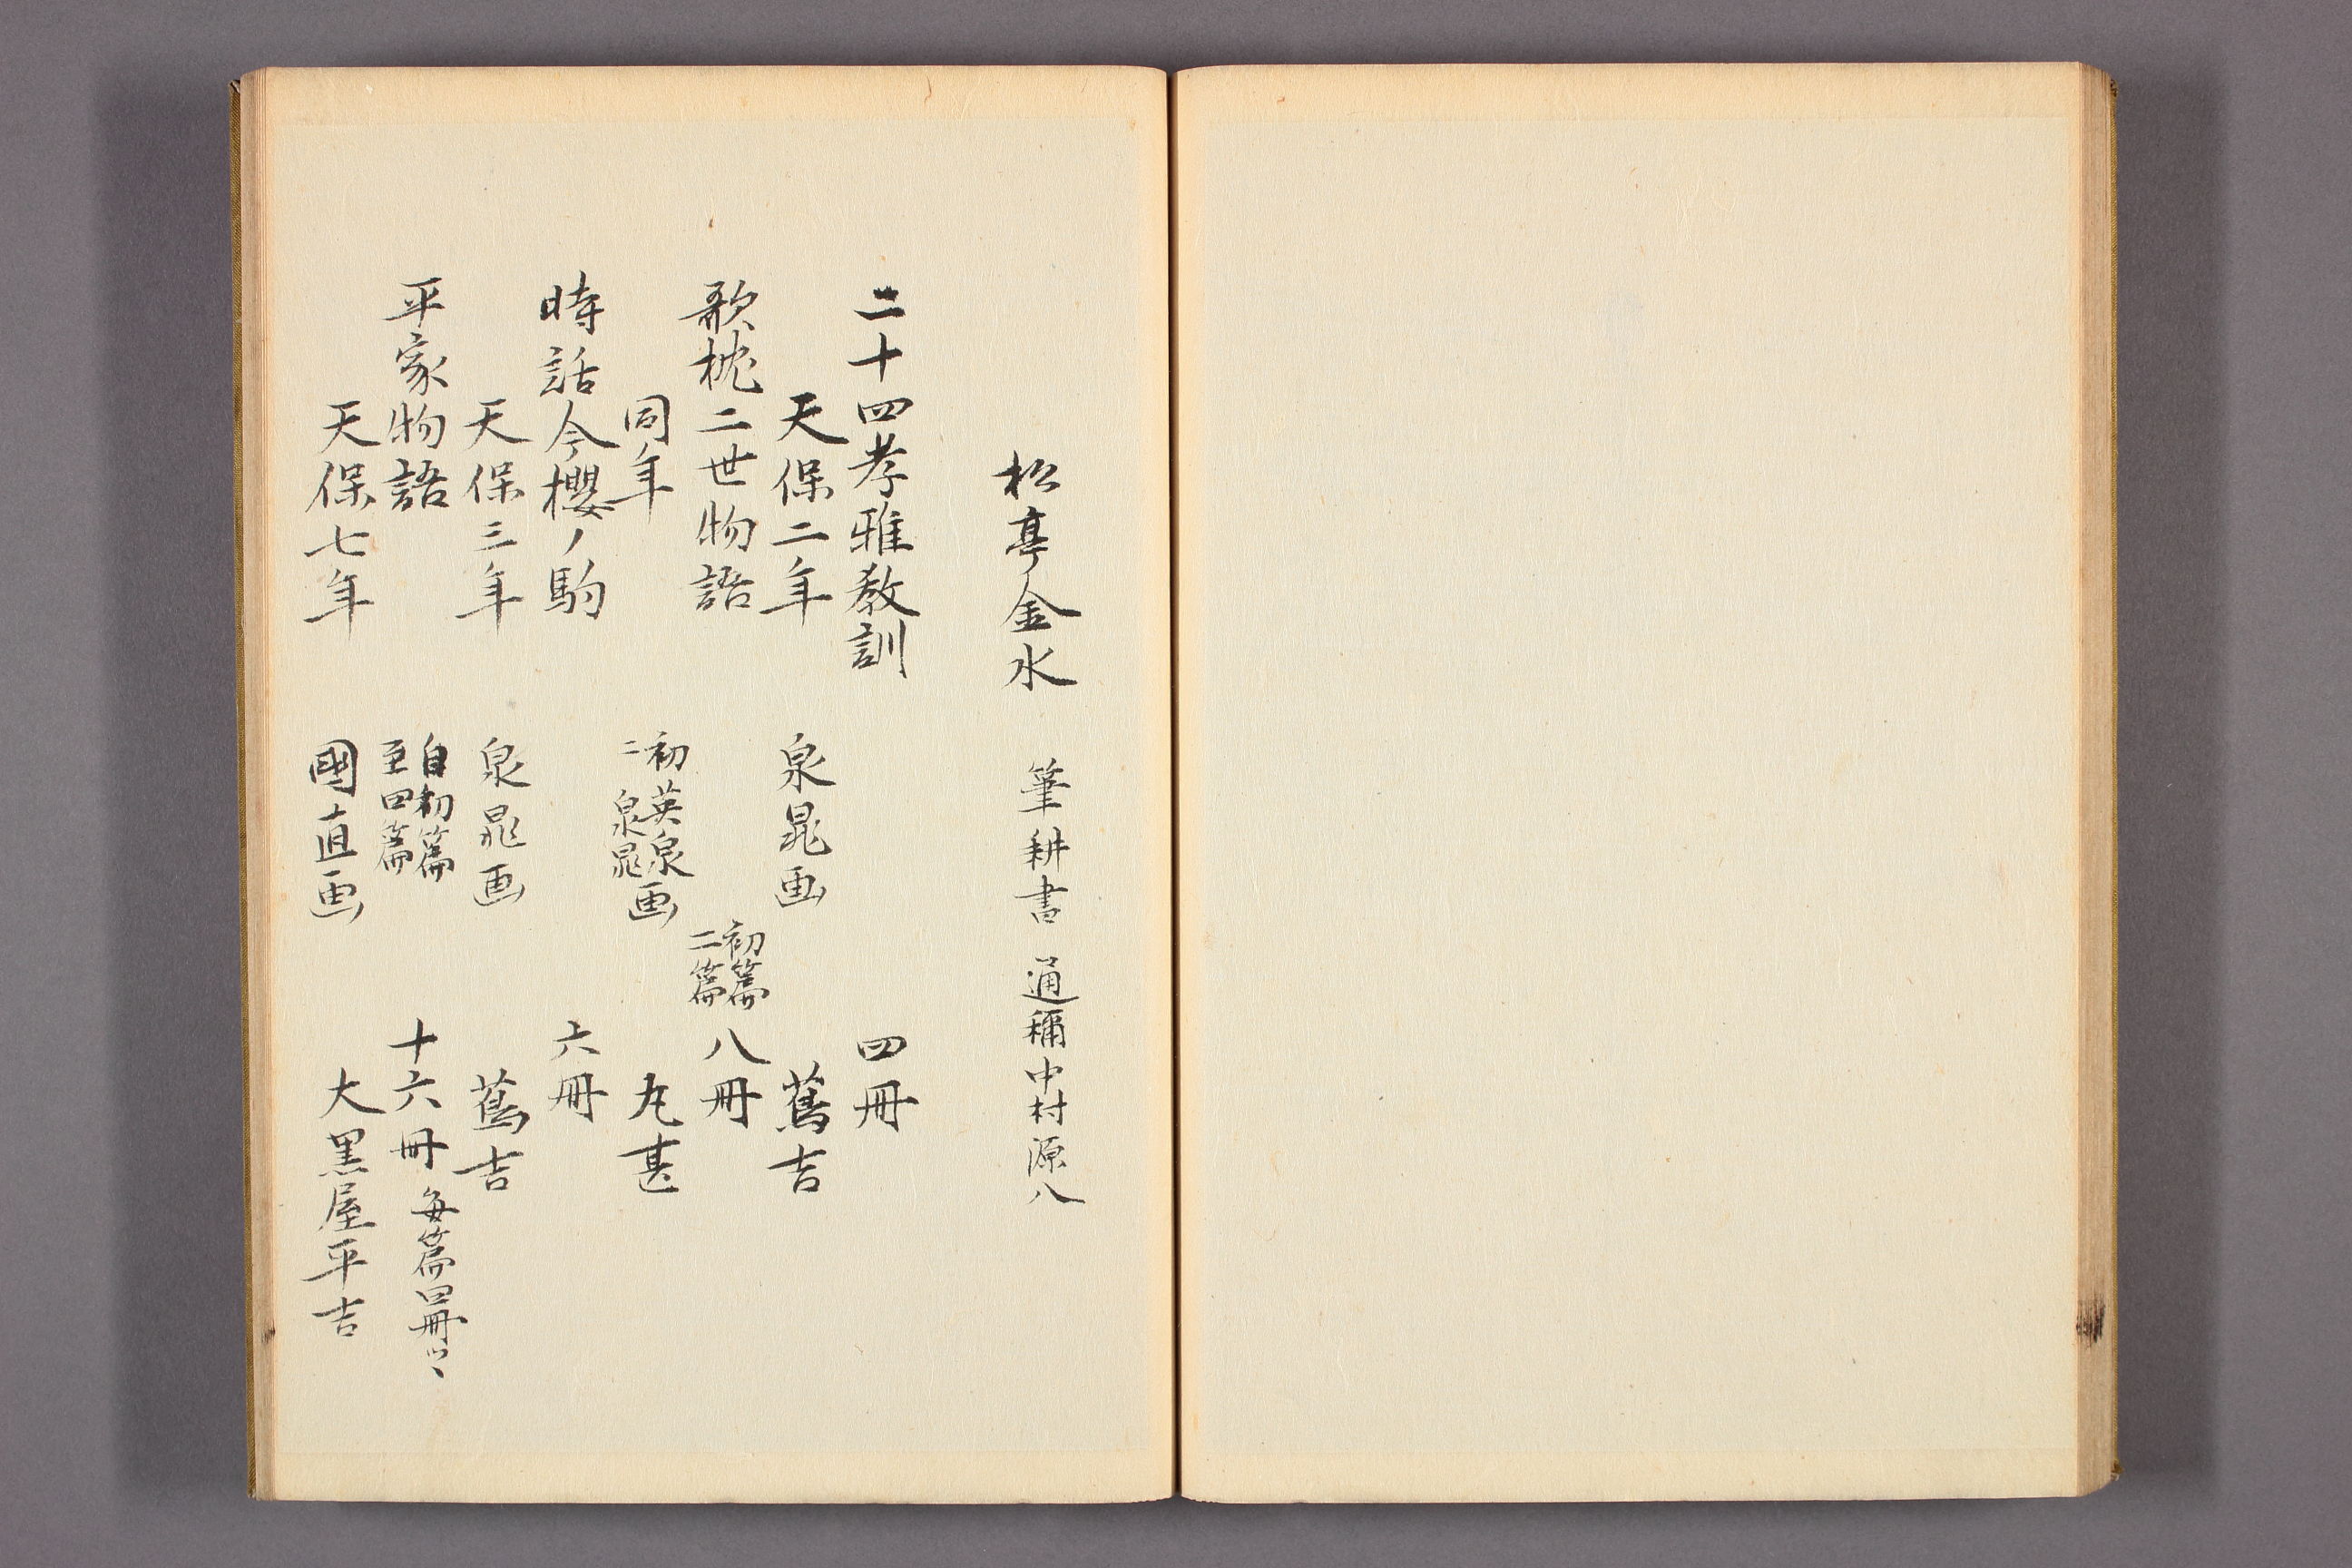 松亭金水 筆耕書 通稱中村源八
二十四孝雅教訓 四冊
天保二年 泉晁画 蔦吉
歌枕二世物語 初篇 二篇 八冊
同年 初英泉 二泉晁 画 丸甚
時話今櫻ノ駒 六冊
天保三年 泉晁画 蔦吉
平家物語 自初篇 至四篇 十六冊 毎篇四冊ツヽ
天保七年 國直画 大黒屋平吉